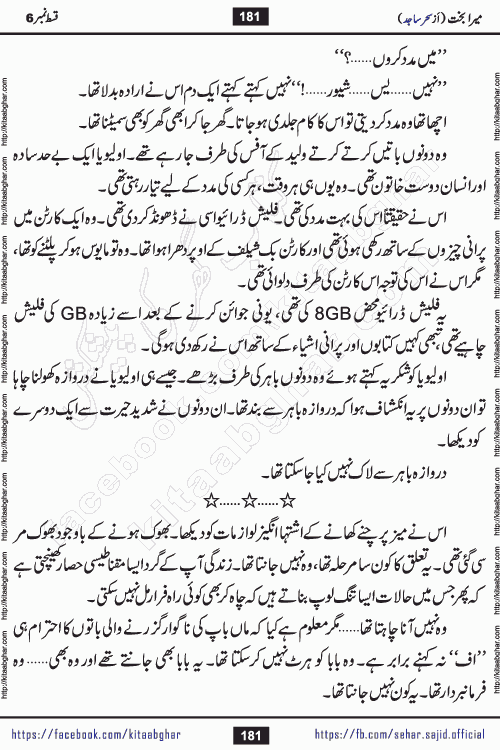 قسط نمبر 6
181
میرا بخت (از سحر ساجد)
”میں مدد کروں......؟“
”نہیں......یس......شیور......!“نہیں کہتے کہتے ایک دم اس نے ارادہ بدلا تھا۔
اچھا تھا وہ مدد کر دیتی تو اس کا کام جلدی ہو جاتا۔ گھر جا کر ابھی گھر کو بھی سمیٹنا تھا۔
وہ دونوں باتیں کرتے کرتے ولید کے آفس کی طرف جا رہے تھے۔ اولیویا ایک بے حد سادہ
اور انسان دوست خاتون تھی۔ وہ یوں ہی ہر وقت، ہر کسی کی مدد کے لیے تیار رہتی تھی۔
اس نے حقیقتاً اس کی بہت مدد کی تھی۔ فلیش ڈرائیو اسی نے ڈھونڈ کر دی تھی۔ وہ ایک کارٹن میں
پرانی چیزوں کے ساتھ رکھی ہوئی تھی اور کارٹن بک شیلف کے اوپر دھرا ہوا تھا۔ وہ تو مایوس ہو کر پلٹنے کو تھا،
مگر اس نے اس کی توجہ اس کارٹن کی طرف دلوائی تھی۔
یہ فلیش ڈرائیو محض 8GB کی تھی، یونی جوائن کرنے کے بعد اسے زیادہ GB کی فلیش
چاہیے تھی، تبھی کہیں کتابوں اور پرانی اشیاء کے ساتھ اس نے رکھ دی ہوگی۔
اولیویا کو شکریہ کہتے ہوئے وہ دونوں باہر کی طرف بڑھے۔ جیسے ہی اولیویا نے دروازہ کھولنا چاہا
تو ان دونوں پر یہ انکشاف ہوا کہ دروازہ باہر سے بند تھا۔ ان دونوں نے شدید حیرت سے ایک دوسرے
کو دیکھا۔
دروازہ باہر سے لاک نہیں کیا جا سکتا تھا۔
☆......☆......☆
اس نے میز پر چنے کھانے کے اشتہا انگیز لوازمات کو دیکھا۔ بھوک ہونے کے باوجود بھوک مر
سی گئی تھی۔ یہ تعلق کا کون سا مرحلہ تھا، وہ نہیں جانتا تھا۔ زندگی آپ کے گرد ایسا مقناطیسی حصار کھینچتی ہے
کہ پھر جس میں حالات ایسا تنگ لوپ بناتے ہیں کہ چاہ کر بھی کوئی راہ فرار مل نہیں سکتی۔
وہ نہیں آنا چاہتا تھا......مگر معلوم ہے کیا کہ ماں باپ کی ناگوار گزرنے والی باتوں کا احترام ہی
”اف“ نہ کہنے برابر ہے۔ وہ بابا کو ہرٹ نہیں کر سکتا تھا۔ یہ بابا بھی جانتے تھے اور وہ بھی...... وہ
فرمانبردار تھا۔ یہ کون نہیں جانتا تھا۔
https://facebook.com/kitaabghar
181
https://fb.com/sehar.sajid.official
http://kitaabghar.com
facebook.com/kitaabghar
kitaabghar.com